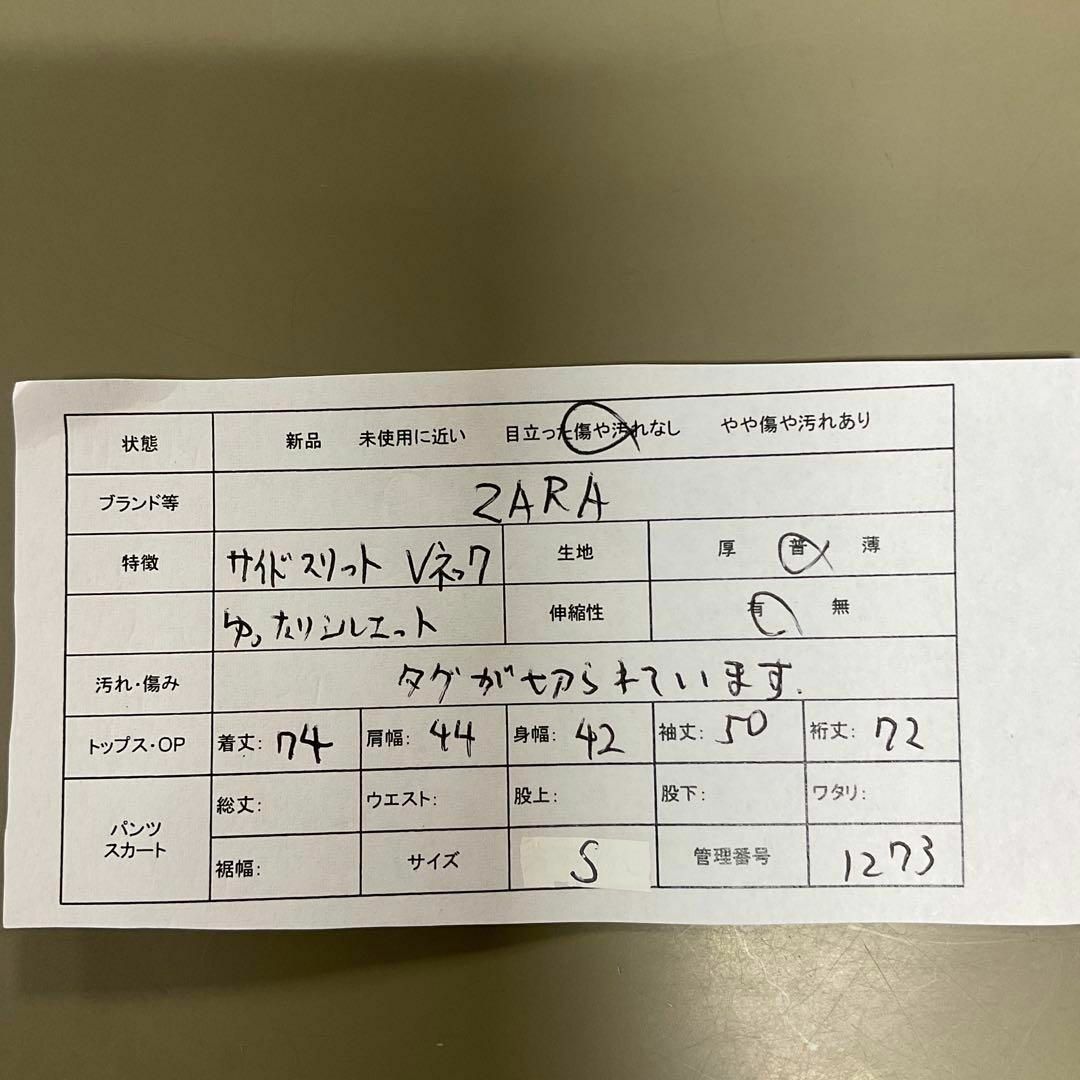 状態 新品 未使用に近い 目立った傷や汚れなし やや傷や汚れあり
ブランド等 ZARA
特徴 サイドスリット Vネック 生地 厚 普 薄
ゆったりシルエット 伸縮性 有 無
汚れ・傷み タグが切られています.
トップス・OP 着丈: 74 肩幅: 44 身幅: 42 袖丈: 50 裄丈: 72
パンツ スカート 総丈: ウエスト: 股上: 股下: ワタリ:
裾幅: サイズ S 管理番号 1273